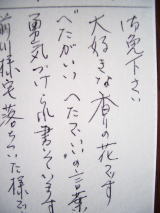 御免下さい
大好きな香りの花です
べたがいい へたでいいの言葉
勇気づけられ書いています
前川様宅落ちついた様で